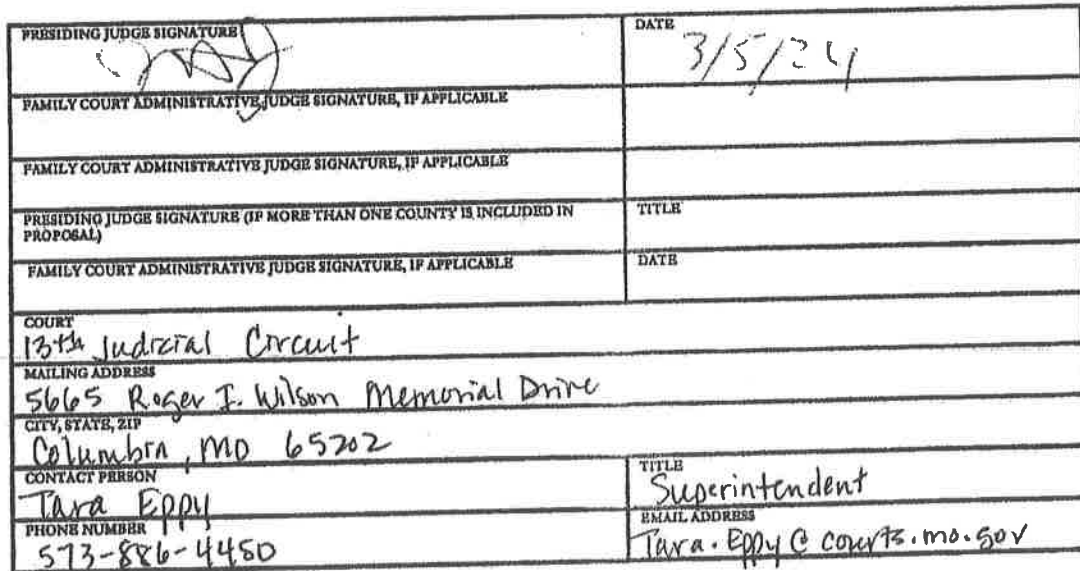 PRESIDING JUDGE SIGNATURE
DATE
3/5/24
FAMILY COURT ADMINISTRATIVE JUDGE SIGNATURE, IF APPLICABLE
FAMILY COURT ADMINISTRATIVE JUDGE SIGNATURE, IF APPLICABLE
PRESIDING JUDGE SIGNATURE (IF MORE THAN ONE COUNTY IS INCLUDED IN
PROPOSAL)
TITLE
FAMILY COURT ADMINISTRATIVE JUDGE SIGNATURE, IF APPLICABLE
DATE
COURT
13th Judicial Circuit
MAILING ADDRESS
5665 Roger I. Wilson Memorial Drive
CITY, STATE, ZIP
Columbia, MO 65202
CONTACT PERSON
Tara Eppy
TITLE
Superintendent
PHONE NUMBER
573-886-4450
EMAIL ADDRESS
Tara.Eppy@courts.mo.gov